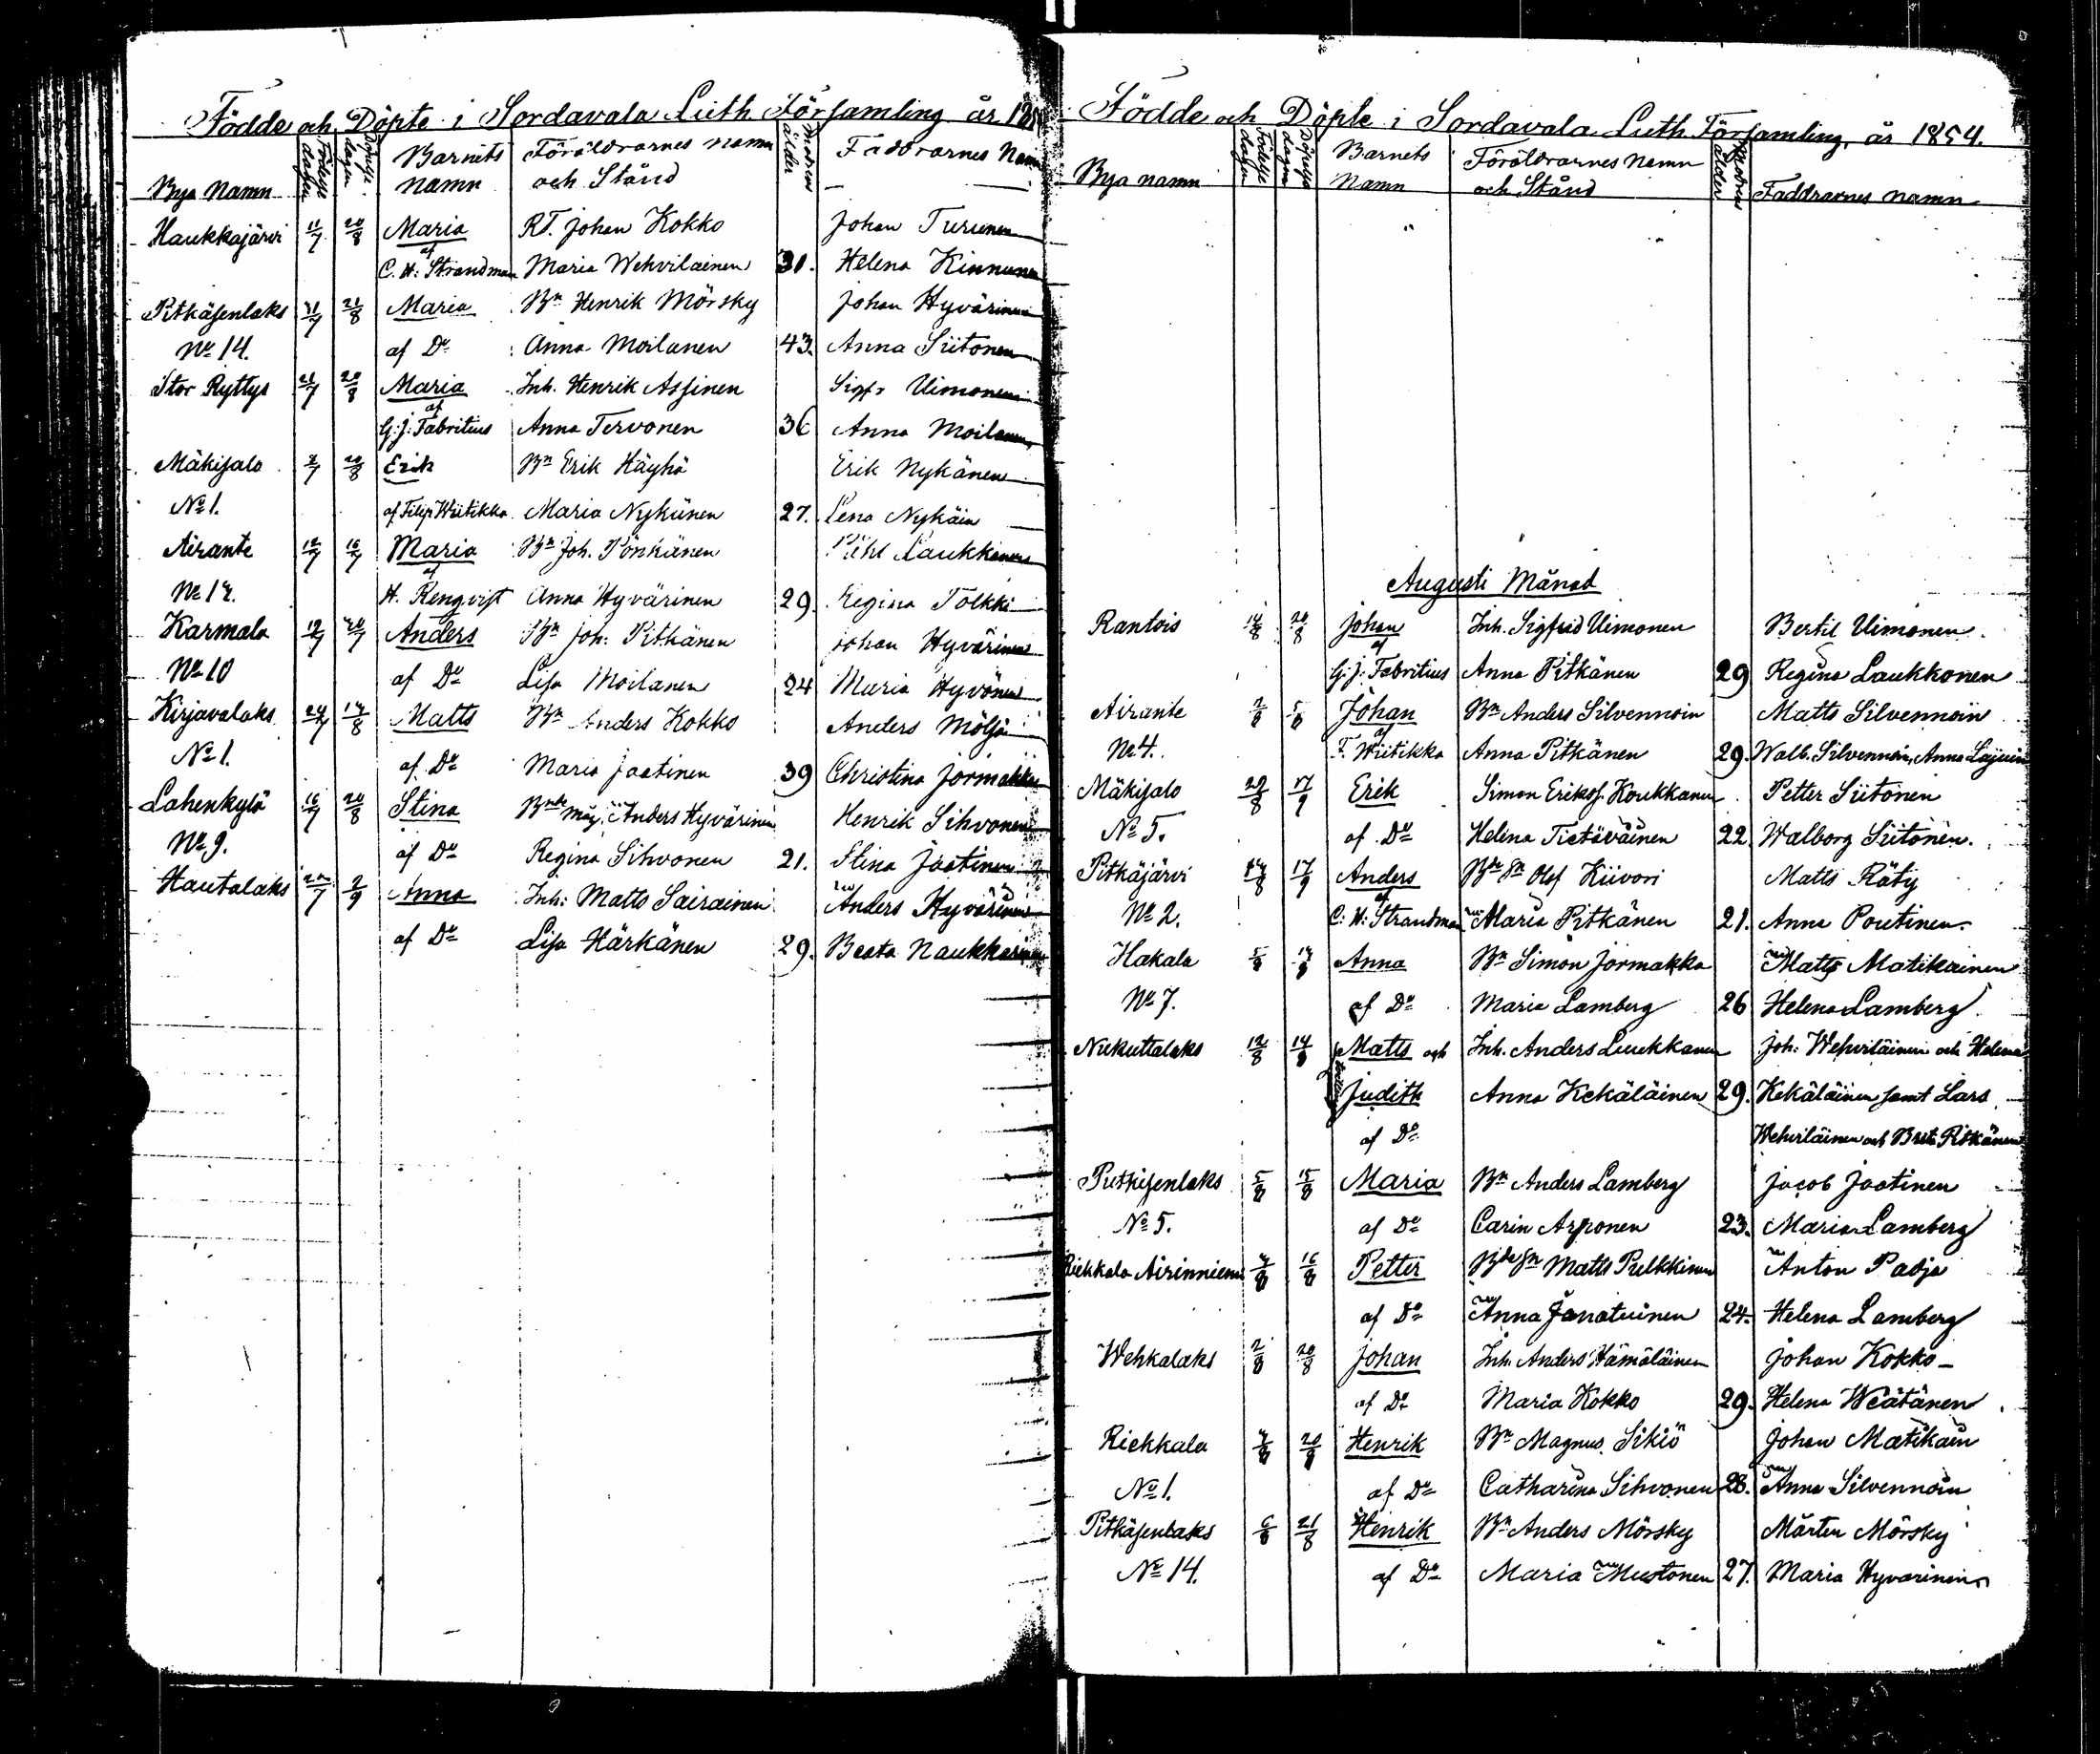 Födde och Döpte i Sordavala Luth Församling år 18
Bya Namn Födelse dagen Döpelse dagen Barnets namn Föräldrarnes namn och Stånd Modrens ålder Faddrarnes Namn
Haukkajärvi 11/7 20/8 Maria RT. Johan Kokko Johan Turunen
af C. H: Strandman Maria Wehvilainen 31. Helena Kinnunen
Pitkäsenlaks 31/7 21/8 Maria Bn Henrik Mörsky Johan Hyvärinen
No 14. af Do Anna Moilanen 43. Anna Siitonen
Stor Ryttys 21/7 20/8 Maria Inh. Henrik Assinen Sigfr Uimonen
af G: J: Fabritius Anna Tervonen 36 Anna Moilanen
Mäkisalo 2/7 20/8 Erik Bn Erik Käyhö Erik Nykänen
No 1. af Filip Wiitikka Maria Nykänen 27. Lena Nykäin
Airante 12/7 16/7 Maria Bn Joh. Pönkänen Laukkanen
af H. Renqvist Anna Hyvärinen 29. Regina Tolkki
Karmala 19/7 20/7 Anders Bn Joh: Pitkänen Johan Hyvärinen
No 10 af Do Lisa Moilanen 24 Maria Hyvönen
Kirjavalaks 24/7 14/8 Matts Bn Anders Kokko Anders Mölsä
No 1. af Do Maria Jaatinen 39 Christina Jormakka
Lahenkylä 16/7 20/8 Stina Bnde måg. Anders Hyvärinen Henrik Sihvonen
No 9. af Do Regina Sihvonen 21. Stina Jaatinen
Hautalaks 22/7 2/9 Anna Inh: Matts Sairainen Anders Hyvärinen
af Do Lisa Härkänen 29. Beata Naukkarinen
Födde och Döpte i Sordavala Luth. Församling, år 1854.
Bya namn Födelse dagen Döpelse dagen Barnets Namn Föräldrarnes Namn och Stånd Modrens ålder Faddrarnes namn
Augusti Månad
Rantois 14/8 20/8 Johan Inh. Sigfrid Uimonen Bertil Uimonen
af G: J: Fabritius Anna Pitkänen 29 Regina Laukkonen
Airante 2/8 5/8 Johan Bn Anders Silvennoin Matts Silvennoin
No 4. af F. Wiitikka Anna Pitkänen 29. Walb. Silvennoin, Anna
Mäkisalo 29/8 17/9 Erik Simon Erikss. Koukkanen Petter Siitonen
No 5. af Do Helena Tietäväinen 22. Walborg Siitonen.
Pitkäjärvi 17/9 Anders Bde Sn Olof Kiivari Matts Räty
No 2. af C: H: Strandman Maria Pitkänen 21. Anna Poutinen.
Hakala 5/8 14/8 Anna Bn Simon Jormakka Matts Matikainen
No 7. af Do Maria Lamberg 26 Helena Lamberg
Nukuttalaks 12/8 14/8 Matts och Inh. Anders Luukkanen Joh: Wehviläinen och Helena
Judith Anna Kekäläinen 29. Kekäläinen samt Lars
af Do Wehviläinen och Brita Pitkänen
Putkisenlaks 5/8 15/8 Maria Bn Anders Lamberg Jacob Jaatinen
No 5. af Do Carin Arponen 23. Maria Lamberg
Riekkala Airinniemi 4/8 16/8 Petter Bde Sn Matts Pulkkinen Anton Patja
af Do Anna Janatuinen 24. Helena Lamberg
Wehkalaks 2/8 20/8 Johan Inh. Anders Hämäläinen Johan Kokko
af Do Maria Kokko 29. Helena Wäätänen
Riekkala 4/8 20/8 Henrik Bn Magnus Sikiö Johan Matikain
No 1. af Do Catharina Sihvonen 28. Anna Silvennoin
Pitkäsenlaks 6/8 21/8 Henrik Bn Anders Mörsky Mårten Mörsky
No 14. af Do Maria Mustonen 27. Maria Hyvärinen